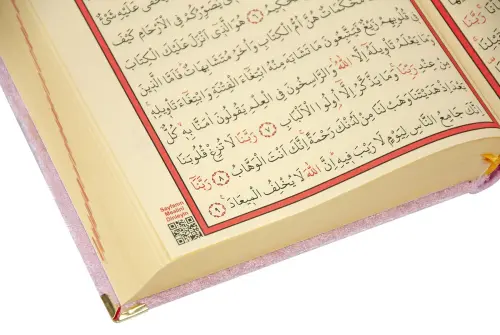 هُوَ الَّذِي يُصَوِّرُكُمْ فِي الْاَرْحَامِ كَيْفَ
هُوَ الَّذِي اَنْزَلَ عَلَيْكَ الْكِتَابَ
مُحْكَمَاتٌ هُنَّ اُمُّ الْكِتَابِ وَاُخَرُ مُتَشَابِهَاتٌ فَاَمَّا الَّذِينَ
فِي قُلُوبِهِمْ زَيْغٌ فَيَتَّبِعُونَ مَا تَشَابَهَ مِنْهُ ابْتِغَاءَ الْفِتْنَةِ وَابْتِغَاءَ تَاْوِيلِهِ
وَمَا يَعْلَمُ تَاْوِيلَهُ اِلَّا اللّٰهُ وَالرَّاسِخُونَ فِي الْعِلْمِ يَقُولُونَ اٰمَنَّا بِهِ كُلٌّ
مِنْ عِنْدِ رَبِّنَا وَمَا يَذَّكَّرُ اِلَّا اُولُوا الْاَلْبَابِ ﴿٧﴾ رَبَّنَا لَا تُزِغْ قُلُوبَنَا
بَعْدَ اِذْ هَدَيْتَنَا وَهَبْ لَنَا مِنْ لَدُنْكَ رَحْمَةً اِنَّكَ اَنْتَ الْوَهَّابُ ﴿٨﴾ رَبَّنَا
اِنَّكَ جَامِعُ النَّاسِ لِيَوْمٍ لَا رَيْبَ فِيهِ اِنَّ اللّٰهَ لَا يُخْلِفُ الْمِيعَادَ ﴿٩﴾
Sayfanın
Mealini
Dinleyin